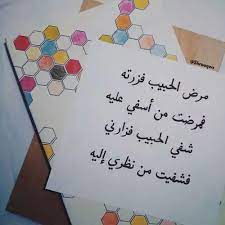 مرض الحبيب فزرته
فمرضت من أسفي عليه
شفي الحبيب فزارني
فشفيت من نظري إليه